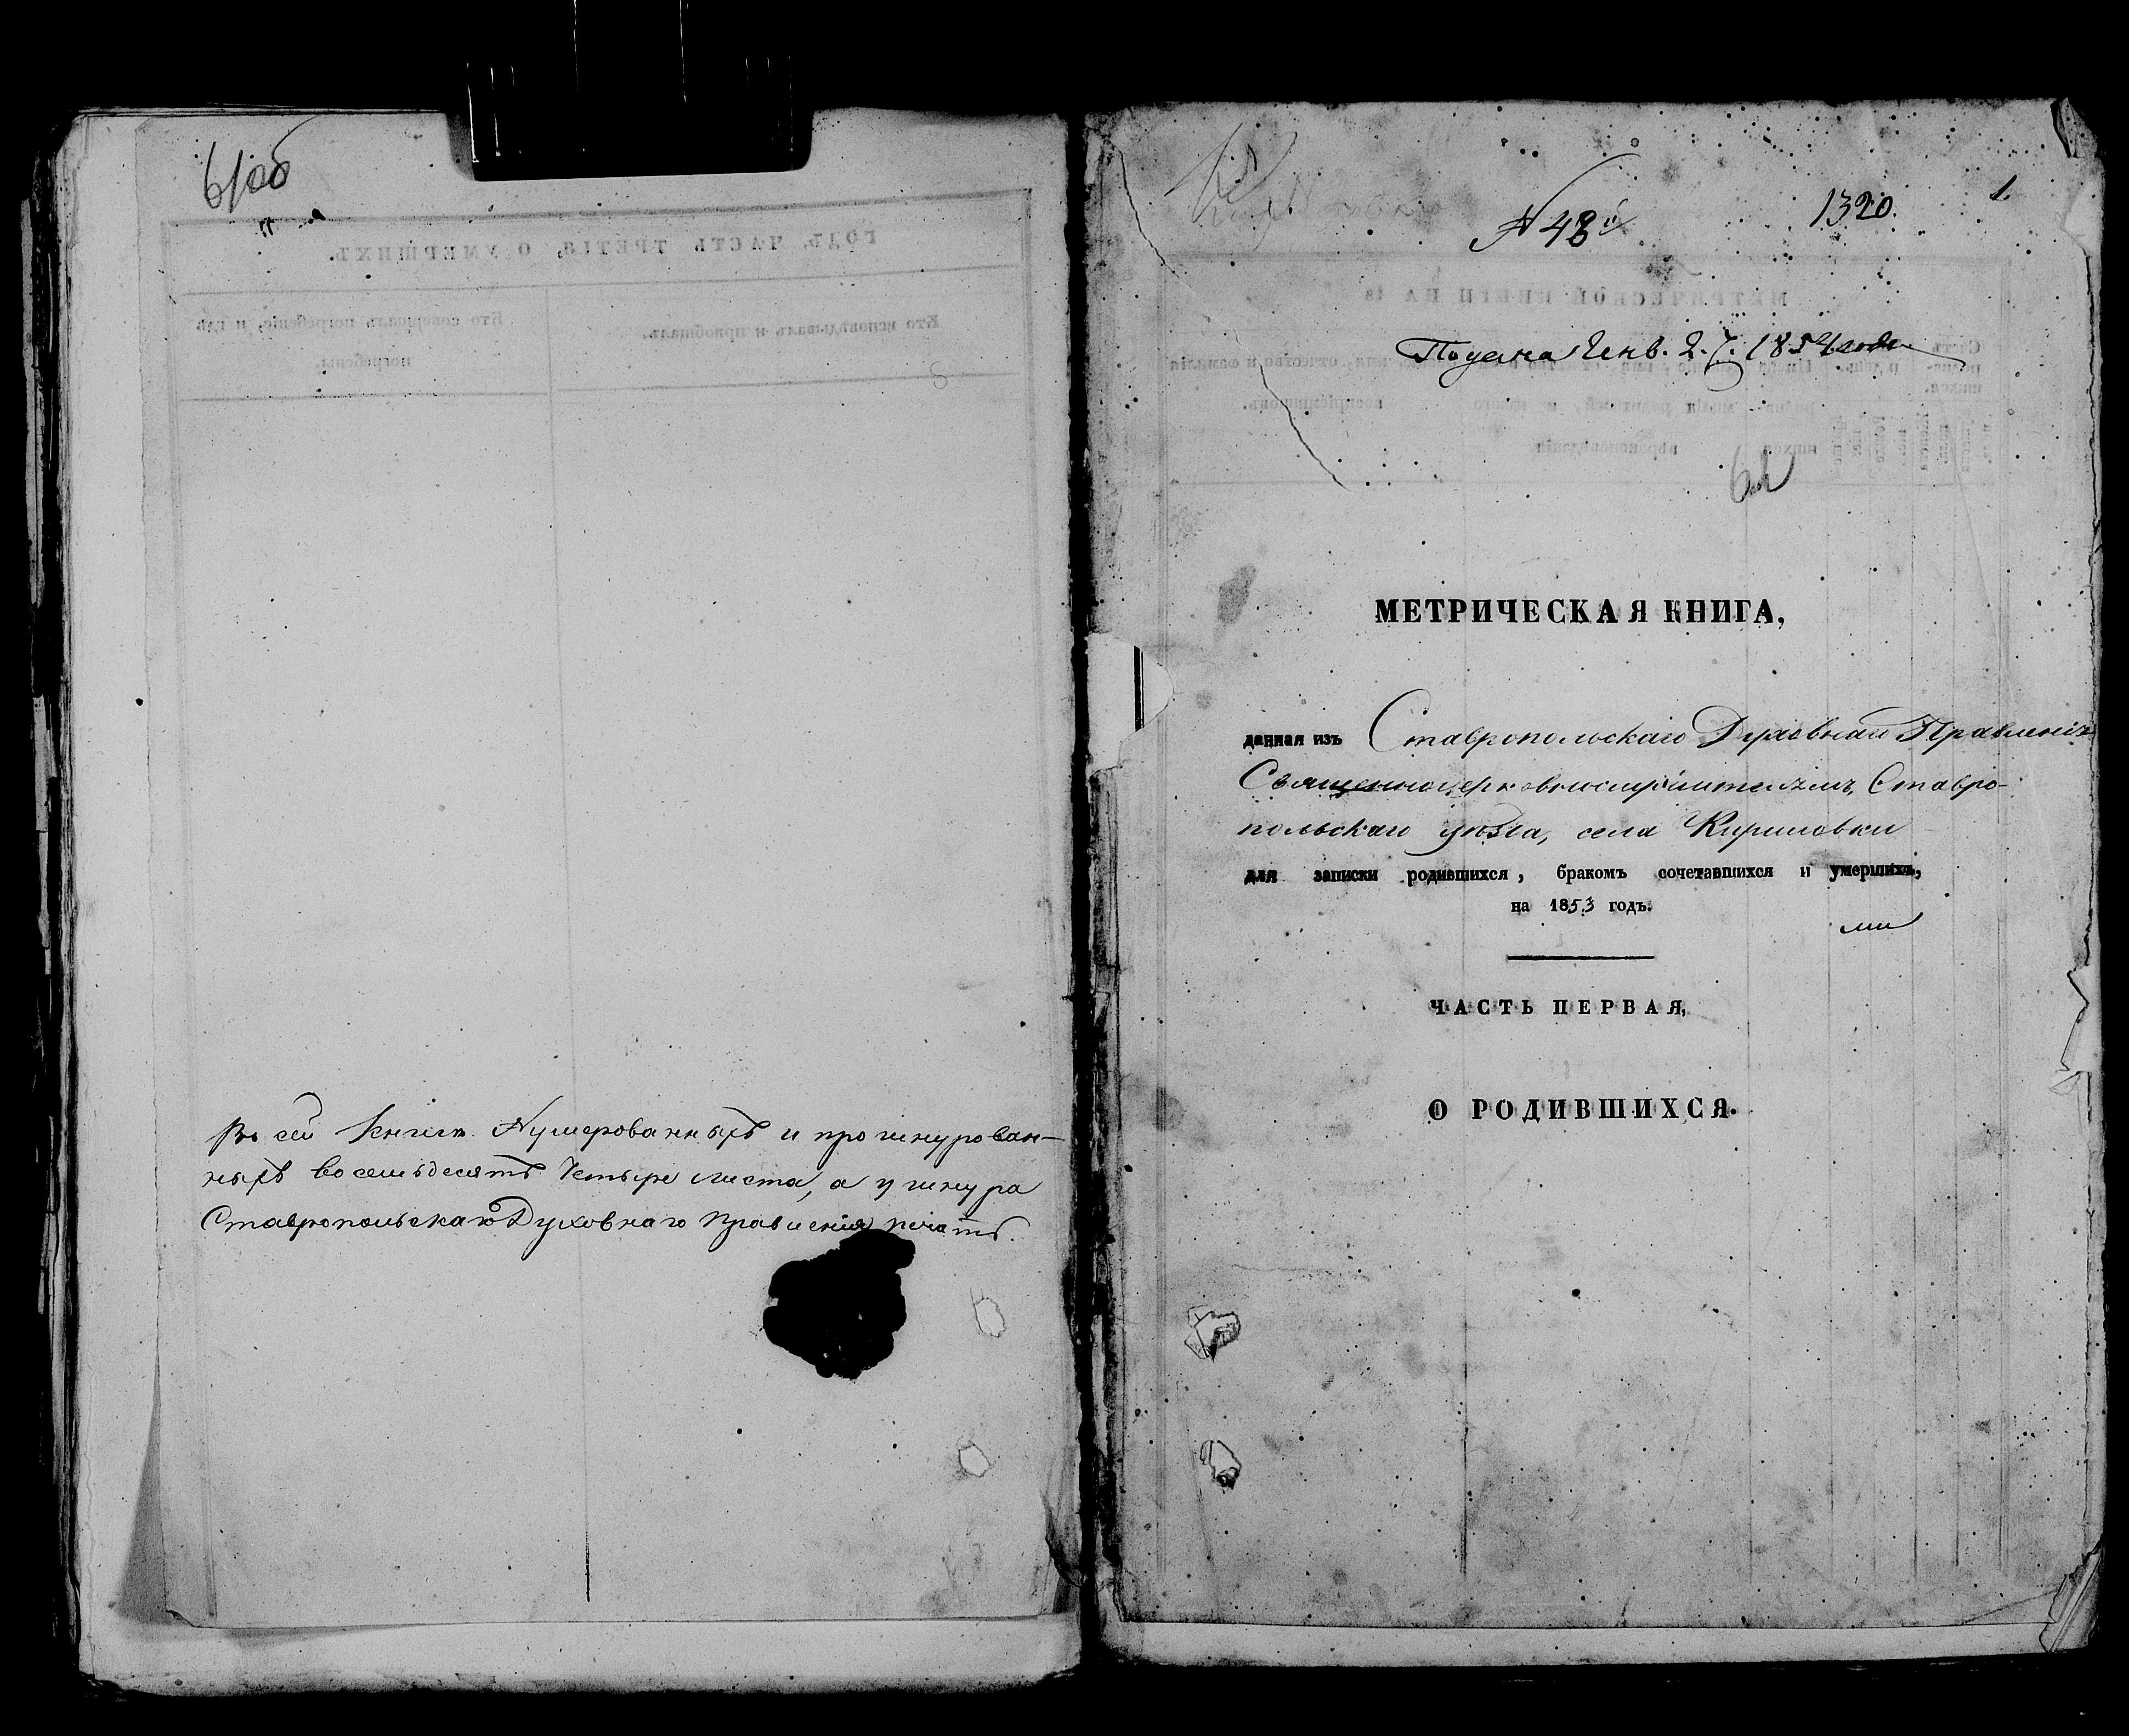 61об
Въ сей Книгѣ Нумерованныхъ и прошнурован-
ныхъ восемьдесятъ Четыре листа, а у шнура
Ставропольскаго Духовнаго Правленія печать.
1.
1320.
N 48й
Подана Генв. 27. 1854 года
62
МЕТРИЧЕСКАЯ КНИГА,
данная изъ Ставропольскаго Духовнаго Правленія
Священноцерковнослужителямъ, Ставро-
польскаго уѣзда, села Кириловки
для записки родившихся, бракомъ сочетавшихся и умершихъ,
на 1853 годъ.
ЧАСТЬ ПЕРВАЯ,
О РОДИВШИХСЯ.